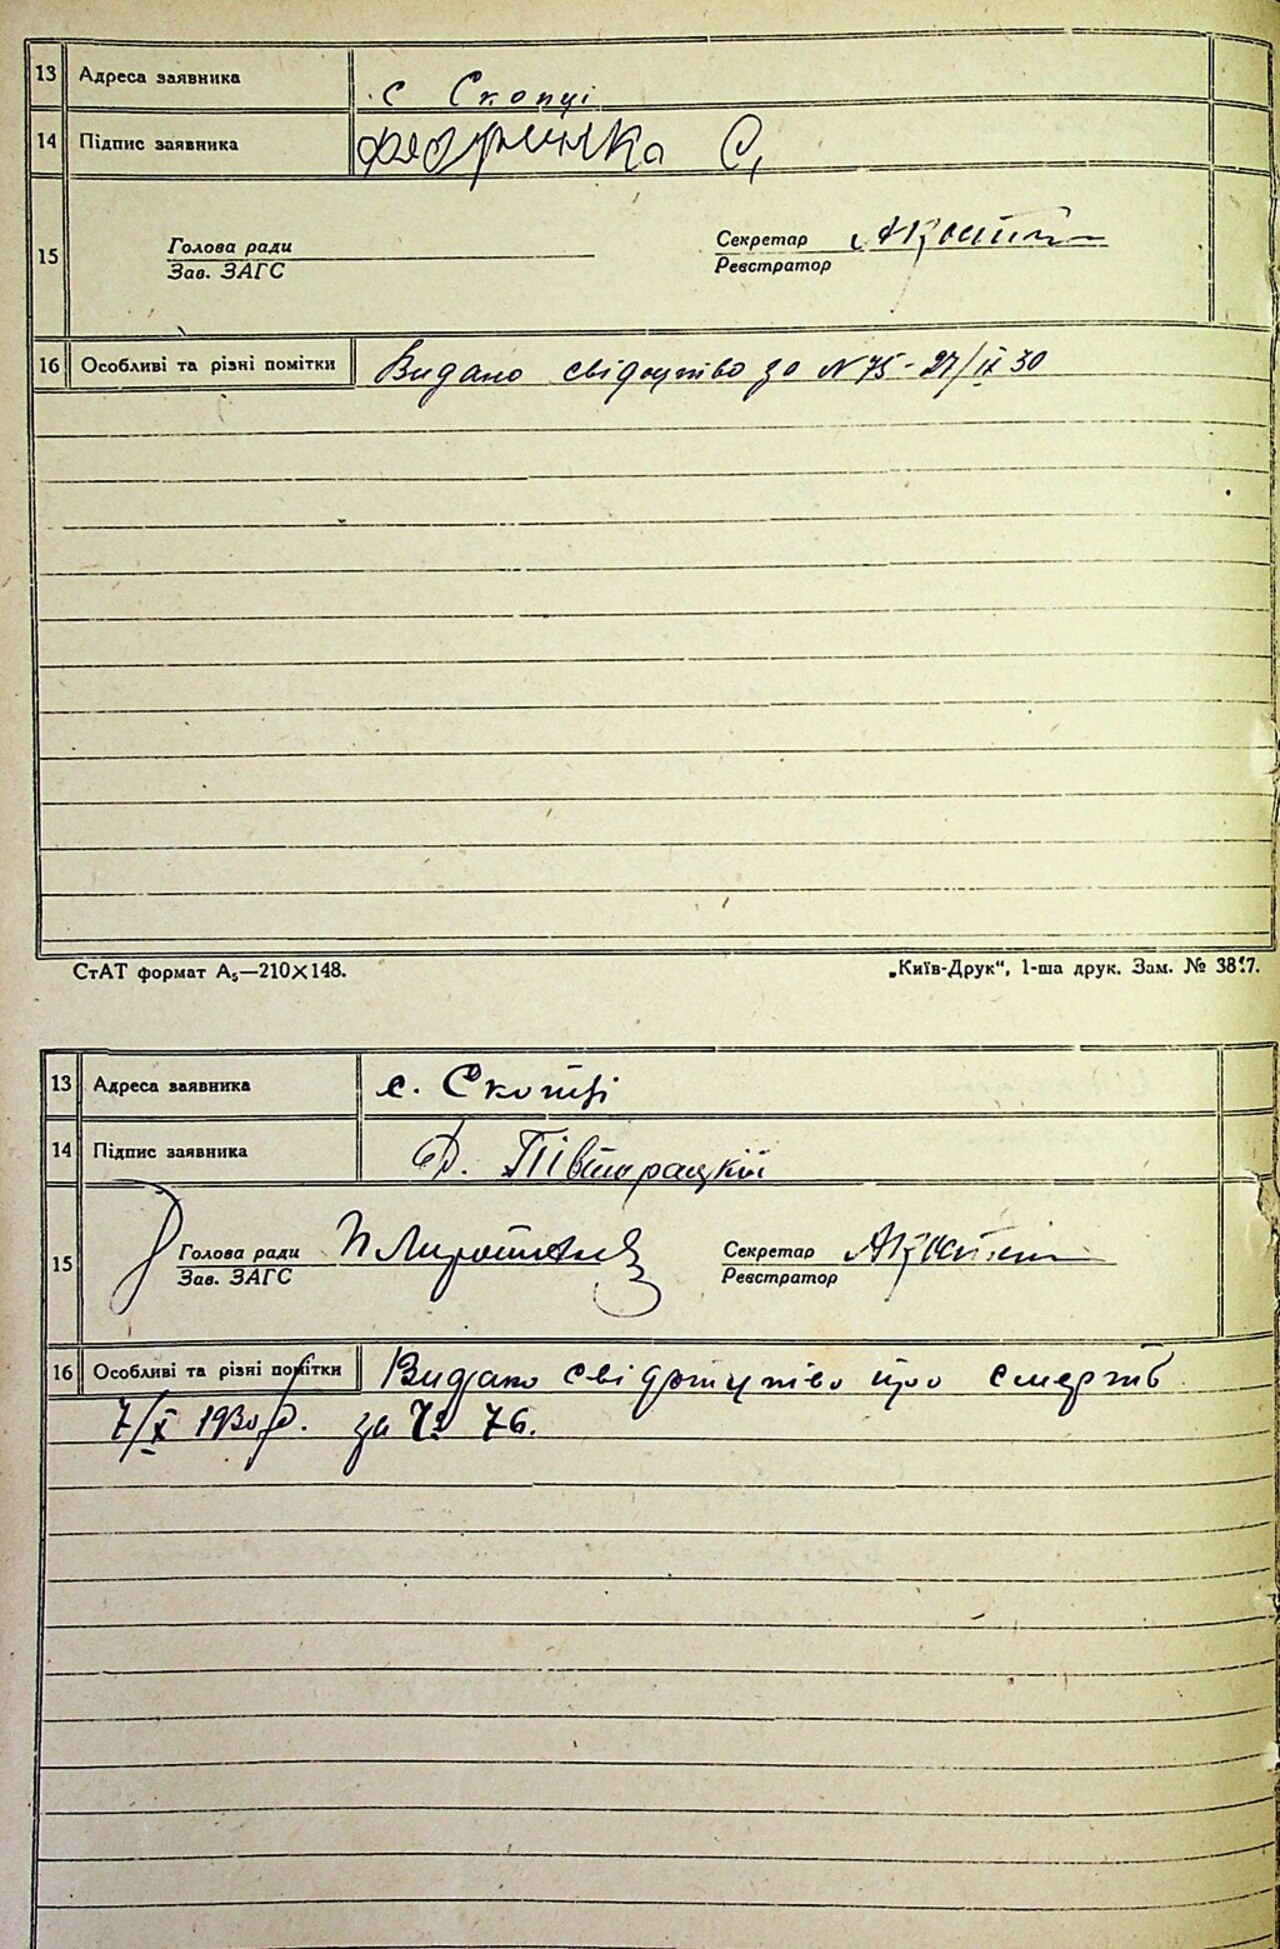 13 Адреса заявника с Скопці
14 Підпис заявника С,
15 Голова ради Секретар
Зав. ЗАГС Реєстратор
16 Особливі та різні помітки Видано свідоцтво за N 75 - 27/IX 30
СтАТ формат А₅—210×148. „Київ-Друк“, 1-ша друк. Зам. № 38
13 Адреса заявника с. Скопці
14 Підпис заявника Півторацкій
15 Голова ради Секретар
Зав. ЗАГС Реєстратор
16 Особливі та різні помітки Видано свідотцтво про смерть
7/X 1930 р. за № 76.